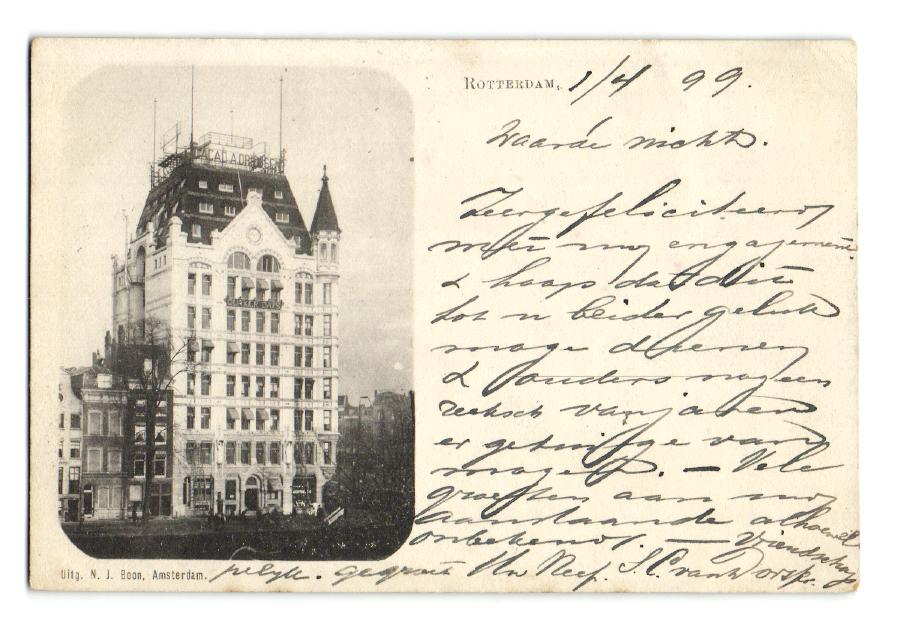 ROTTERDAM, 1/4 99.
Waarde nicht.
Zeer gefeliciteerd
met uw engagement
& hoop dat dit
tot u beider geluk
moge dienen
& ouders nog een
reeks van jaren
er getuige van
mogen. — Vele
groeten aan uw
aanstaande alhoewel
onbekend. — vriendschap
pelijk. gegroet Uw Neef. S. C.
Uitg. N. J. Boon, Amsterdam.